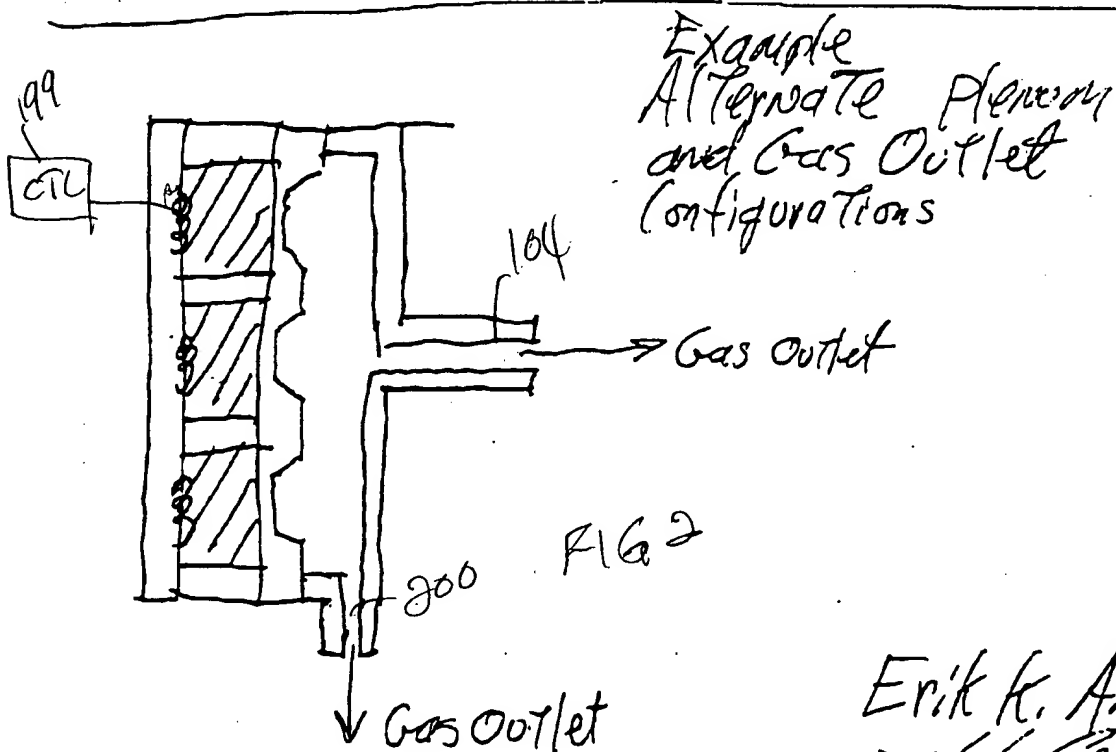 Example
Alternate Plenum
and Gas Outlet
Configurations
199
CTL
104
Gas Outlet
FIG 2
200
Gas Outlet
Erik K. A.